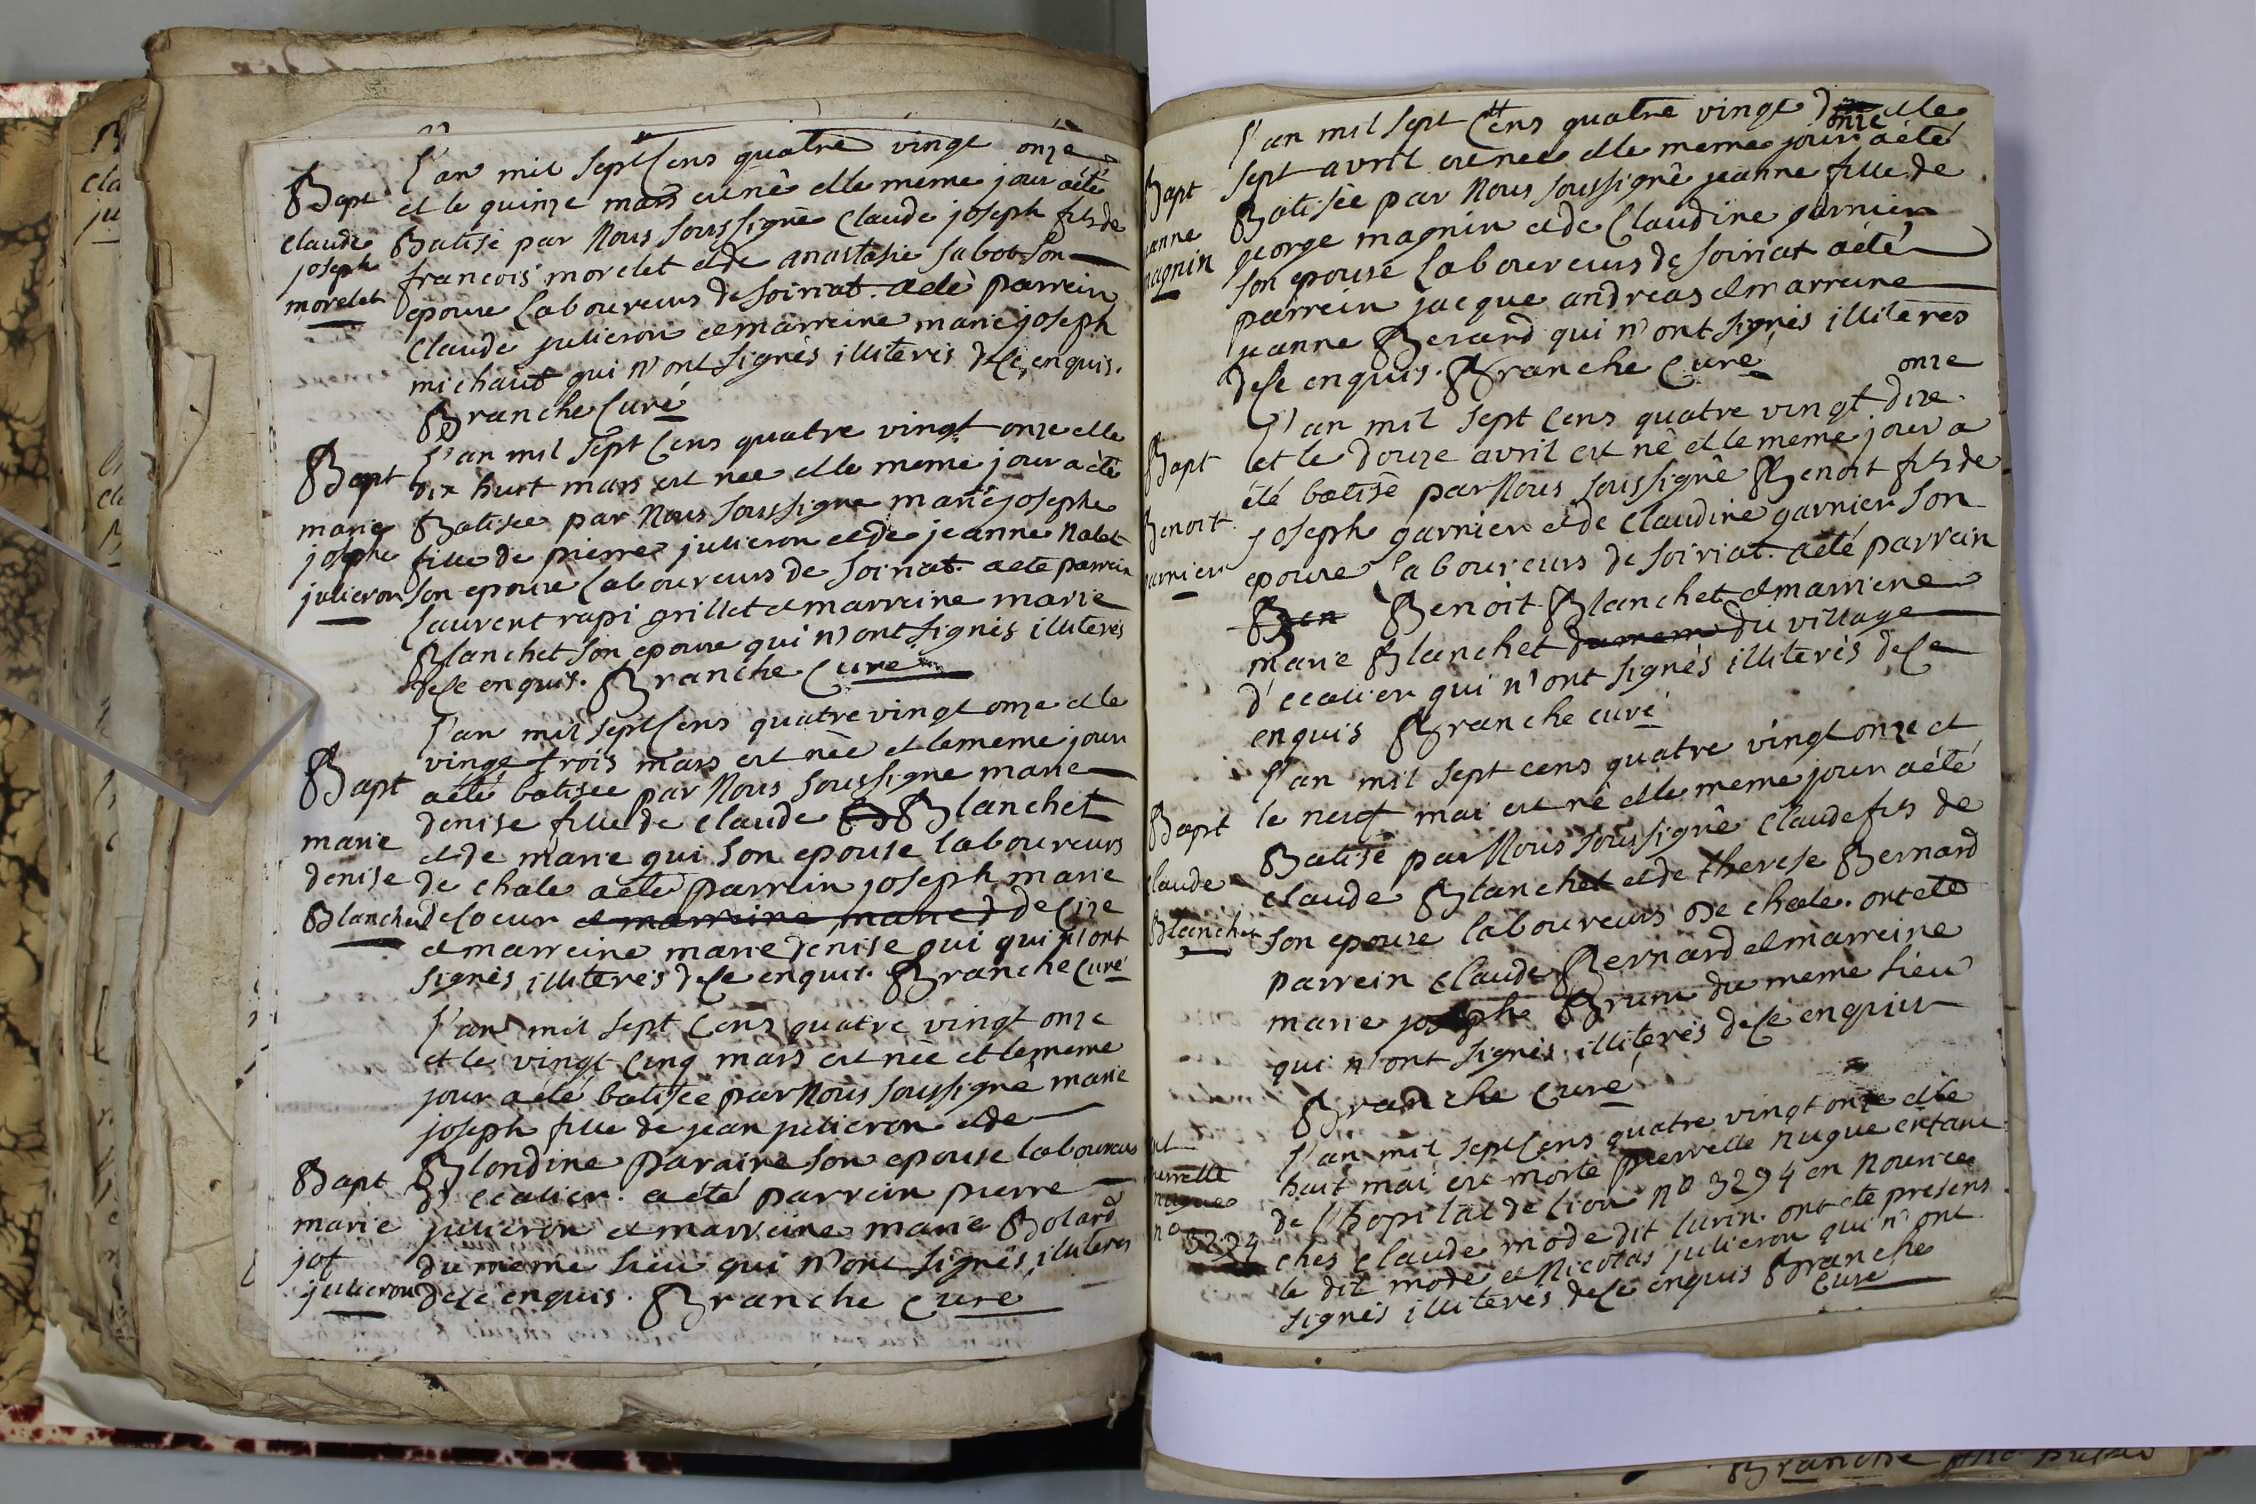 l'an mil sept Cens quatre vingt onze
Bapt
et le quinze mars est né et le meme jour a été
claude
Batisé par Nous soussigné Claude joseph fils de
joseph
francois morelet et de anastasie sabot son
morelet
epouse laboureurs de soiriat. a eté parrein
Claude julieron et marreine marie joseph
michaut qui n'ont signés illiterés de ce enquis.
Branche Curé
l'an mil sept Cens quatre vingt onze et le
Bapt
dix huit mars est née et le meme jour a été
marie
Batisée par Nous soussigné marie josephe
josephe
fille de pierre julieron et de jeanne Nalet
julieron
son epouse laboureurs de soiriat. a eté parrein
laurent rapi grillet et marreine marie
Blanchet son epouse qui n'ont signés illiterés
de ce enquis. Branche Curé
l'an mil sept Cens quatre vingt onze et le
vingt trois mars est née et le meme jour
Bapt
a été batisée par Nous soussigné marie
denise fille de claude Blanchet
marie
et de marie gui son epouse laboureurs
denise
de chale a eté parrein joseph marie
Blanchet
decoeur et marreine marie d de Cize
et marreine marie denise gui qui n'ont
signés illiterés de ce enquis. Branche Curé
l'an mil sept Cens quatre vingt onze
et le vingt Cinq mars est née et le meme
jour a été batisée par Nous soussigné marie
joseph fille de jean julieron et de
Bapt
Blondine paraire son epouse laboureurs
d'ecalier. a été parrein pierre
marie
julieron et marreine marie Bolard
jos
du meme lieu qui n'ont signés illiterés
julieron
de ce enquis. Branche Curé
l'an mil sept Cens quatre vingt onze et le
Bapt
sept avril est née et le meme jour a été
Batisée par Nous soussigné jeanne fille de
anne
george magnin et de Claudine garnier
magnin
son epouse laboureurs de soiriat a été
parrein jacque andreas et marreine
jeanne Berard qui n'ont signés illiterés
de ce enquis. Branche Curé
onze
l'an mil sept Cens quatre vingt dixe
Bapt
et le douze avril est né et le meme jour a
été batisé par Nous soussigné Benoit fils de
Benoit
joseph garnier et de Claudine garnier son
garnier
epouse laboureurs de soiriat. a été parrein
Ben Benoit Blanchet et marriene
marie Blanchet du mem du village
d'ecalier qui n'ont signés illiterés de ce
enquis Branche curé
l'an mil sept cens quatre vingt onze et
Bapt
le neuf mai est né et le meme jour a été
Batisé par Nous soussigné Claude fils de
Claude
claude Blanchet et de therese Bernard
Blanchet
son epouse laboureurs de chale. ont eté
parrein Claude Bernard et marreine
marie josephe Brunu du meme lieu
qui n'ont signés illiterés de ce enquis
Branche Curé
l'an mil sept Cens quatre vingt onze et le
huit mai est morte pierrette nugue enfant
de l'hopital de lion no 3294 en nourice
no
3294
ches Claude mode dit lurin. ont eté presens
le dit mode et Nicolas julieron qui n'ont
signés illiterés de ce enquis Branche
Curé